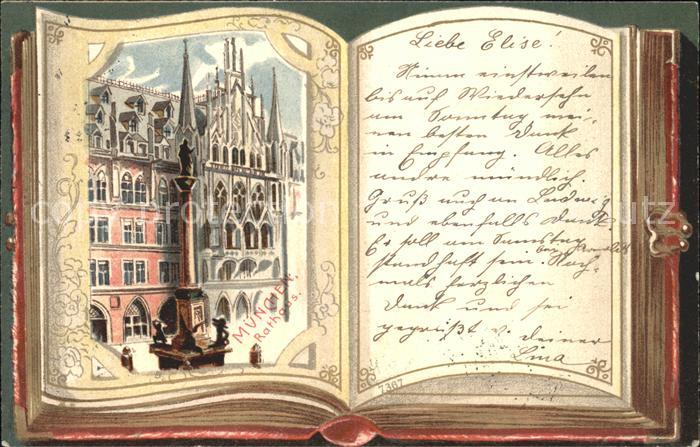 MÜNCHEN,
Rathaus.
Liebe Elise!
Nimm einstweilen
bis auf Wiedersehn
am Sonntag mei-
nen besten Dank
in Empfang. Alles
andre mündlich.
Gruß auch an Ludwig
und ebenfalls Dank.
Er soll am Samstag
standhaft sein. Noch-
mals herzlichen
Dank und sei
gegrüßt v. deiner
Lina
7367